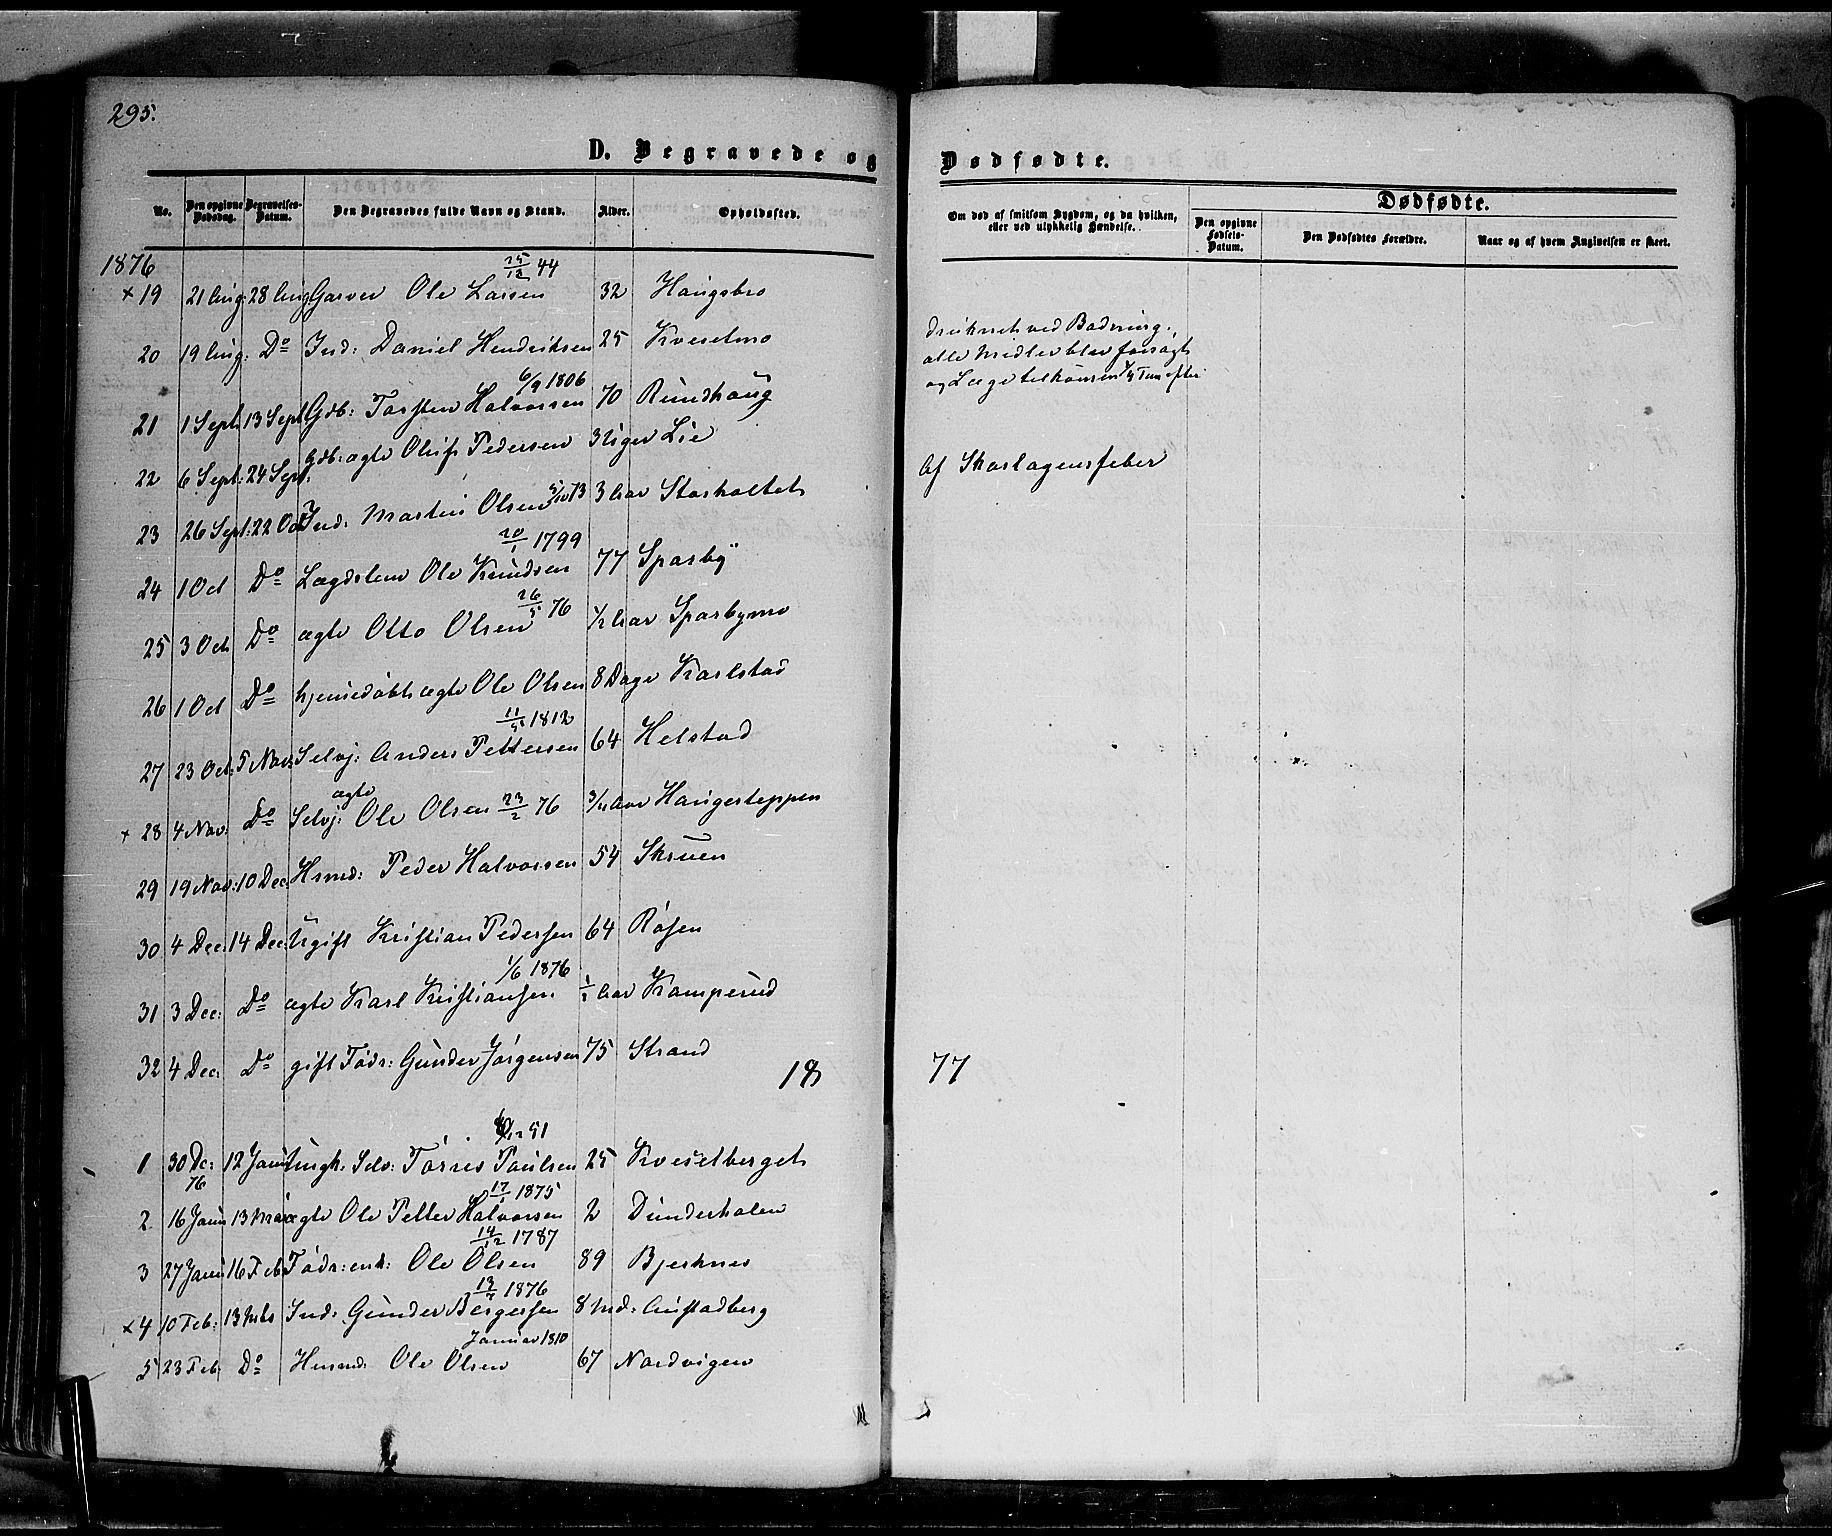 295.
D. Begravede og Dødfødte.
No. Den opgivne Dødsdag. Begravelses-Datum. Den Begravedes fulde Navn og Stand. Alder. Opholdssted. Om død af smitsom Sygdom, og da hvilken, eller ved ulykkelig Hændelse. Dødfødte.
Den opgivne Fødsels-Datum. Den Dødfødtes Forældre. Naar og af hvem Angivelsen er skeet.
1876
25/12 44
× 19 21 Aug: 28 Aug Garver Ole Larsen 32 Haugsbro
20 19 Aug: Do Ind: Daniel Hendriksen 25 Kveselmo druknet ved Badning.,
alle Midler blev forsøgt
og Læge tilkommen 1/4 Time efter
6/9 1806
21 1 Sept 13 Sept Gdb: Torsten Halvorsen 70 Rundhaug
22 6 Sept: 24 Sept. Gdb: ægte Oluf Pedersen 3 Uger Lie Af Skarlagensfeber
23 26 Sept: 22 Oct Ind: Martin Olsen 5/10 73 3 Aar Storholtet
20/1 1799
24 1 Oct Do Lægdslem Ole Knudsen 77 Sparby
26/5 76
25 3 Oct Do ægte Otto Olsen 1/2 Aar Sparbymo
26 1 Oct Do hjemedøbt ægte Ole Olsen 8 Dage Karlstad
11/5 1812
27 23 Oct: 5 Nov: Selvj: Anders Pettersen 64 Helstad
ægte
× 28 4 Nov: Do Selvj: Ole Olsen 23/2 76 3/4 Aar Haugerteppen
29 19 Nov: 10 Dec: Hsmd: Peder Halvorsen 54 Skruen
30 4 Dec: 14 Dec: Ugift Kristian Pedersen 64 Røsen
1/6 1876
31 3 Dec: Do ægte Karl Kristiansen 1/2 Aar Kamperud
32 4 Dec: Do gift Føds: Gunder Jørgensen 75 Strand
18 77
6/12 51
1 30 Dc: 76 12 Janu Ungk. Selv: Torres Paulsen 25 Kveselberget
17/1 1875
2 16 Janu 13 Mar ægte Ole Petter Halvorsen 2 Dunderholen
14/12 1787
3 27 Janu 16 Feb Føds: enk: Ole Olsen 89 Bjerknes
1876
× 4 10 Feb: 13 Mts Ind: Gunder Bergersen 8 Md: Austadberg
Januar 1810
5 23 Feb: Do Husmd: Ole Olsen 67 Nordvigen